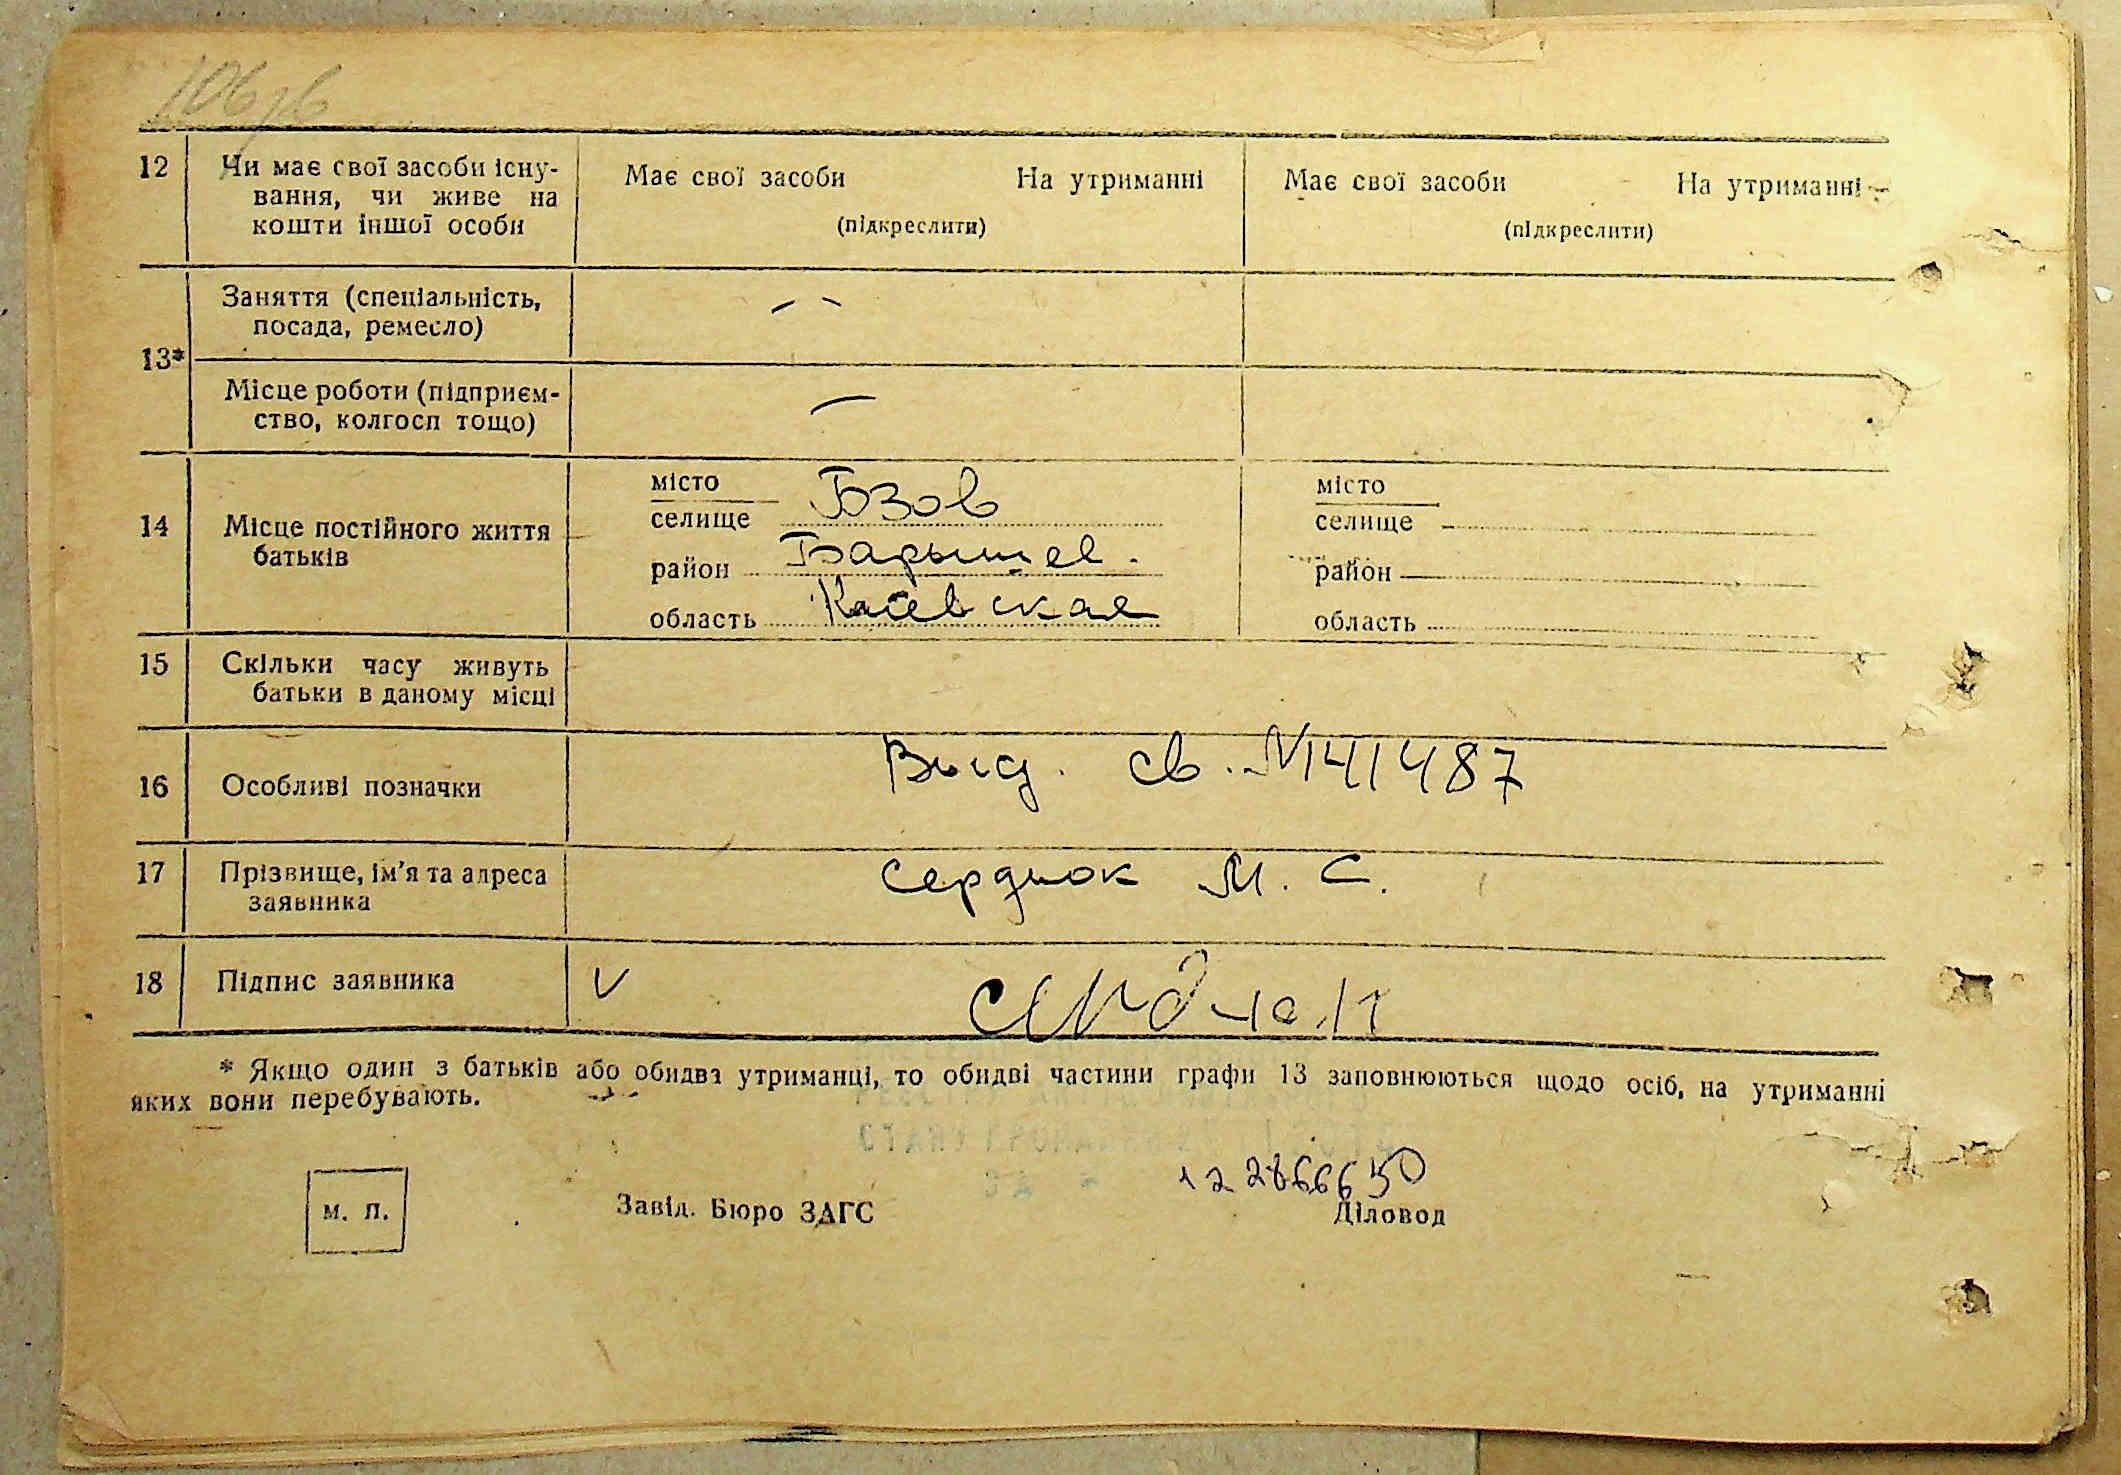 106зв
12 Чи має свої засоби існу-
вання, чи живе на
кошти іншої особи
Має свої засоби На утриманні
(підкреслити)
Має свої засоби На утриманні
(підкреслити)
13*
Заняття (спеціальність,
посада, ремесло)
— —
Місце роботи (підприєм-
ство, колгосп тощо)
—
14 Місце постійного життя
батьків
місто
селище Бзов
район Барышев.
область Киевская
місто
селище
район
область
15 Скільки часу живуть
батьки в даному місці
16 Особливі позначки
Выд. св. №141487
17 Прізвище, ім'я та адреса
заявника
Сердюк М. С.
18 Підпис заявника
V Сердюк
* Якщо один з батьків або обидва утриманці, то обидві частини графи 13 заповнюються щодо осіб, на утриманні
яких вони перебувають.
м. п.
Завід. Бюро ЗАГС
Діловод